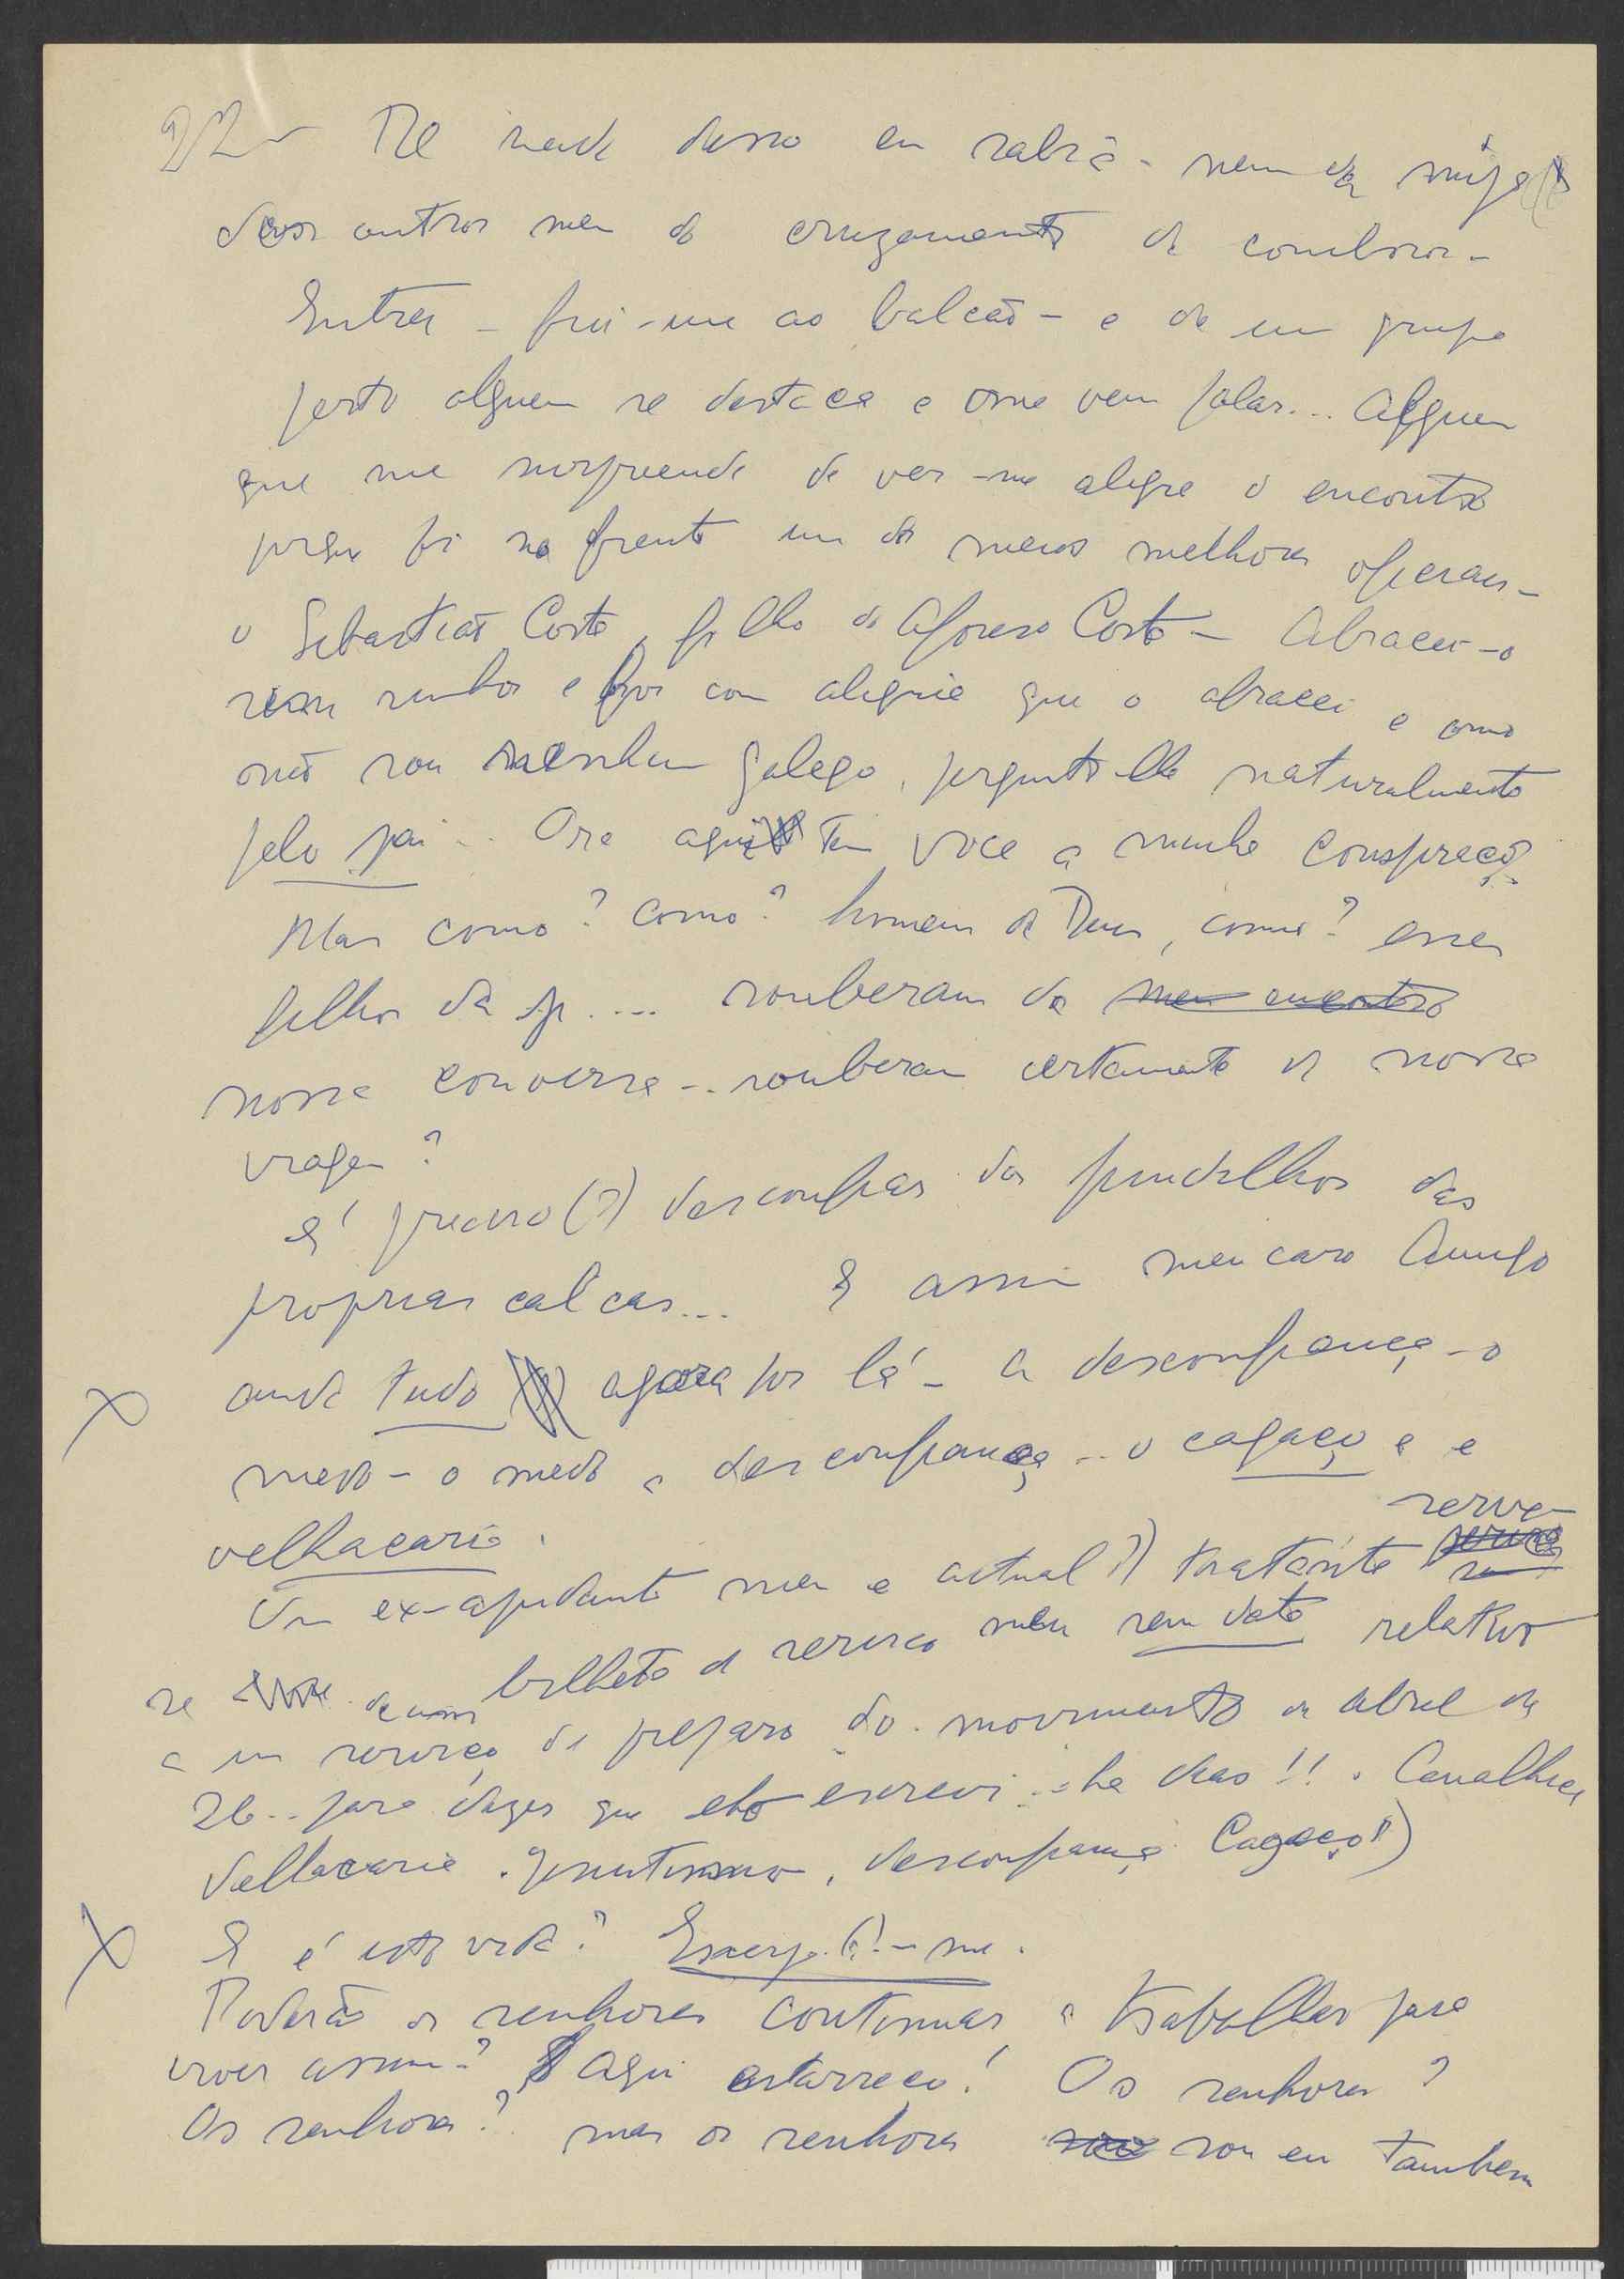 22 - De nada disso eu sabia - nem da
dos outros nem do cruzamento de comboios -
Entrei - fui-me ao balcão - e de um grupo
perto alguem se destaca e me vem falar... Alguem
que me surpreende de ver-me alegre o encontro
porque foi na frente um dos meus melhores oficiaes -
o Sebastião Costa, filho do Afonso Costa - Abracei-o
sim senhor e foi com alegria que o abracei e como
não sou nenhum galego, pergunto-lhe naturalmente
pelo pai... Ora aqui tem voce a minha conspiração..
Mas como? como? homem de Deus, como? esses
filhos da p.... souberam do meu encontro
nossa conversa... souberam certamente da nossa
viagem?
É preciso (?) desconfiar dos fundilhos das
proprias calças... E assim meu caro Amigo
anda tudo agora por lá - a desconfiança - o
medo - o medo e desconfiança... o cagaço e a
velhacaria.
Um ex-ajudante meu e actual (?) tratante serve-
se de um bilhete de serviço meu sem data relativo
a um serviço de preparo do movimento de abril de
26.. para dizer que eu o escrevi ha dias!!. Canalhice
Velhacaria. Jesuitismo, desconfiança Cagaço!)
E é isto vida? (?)-me.
Poderão os senhores continuar a trabalhar para
viver assim? E aqui estarreço! Os senhores?
Os senhores? mas os senhores sou eu tambem